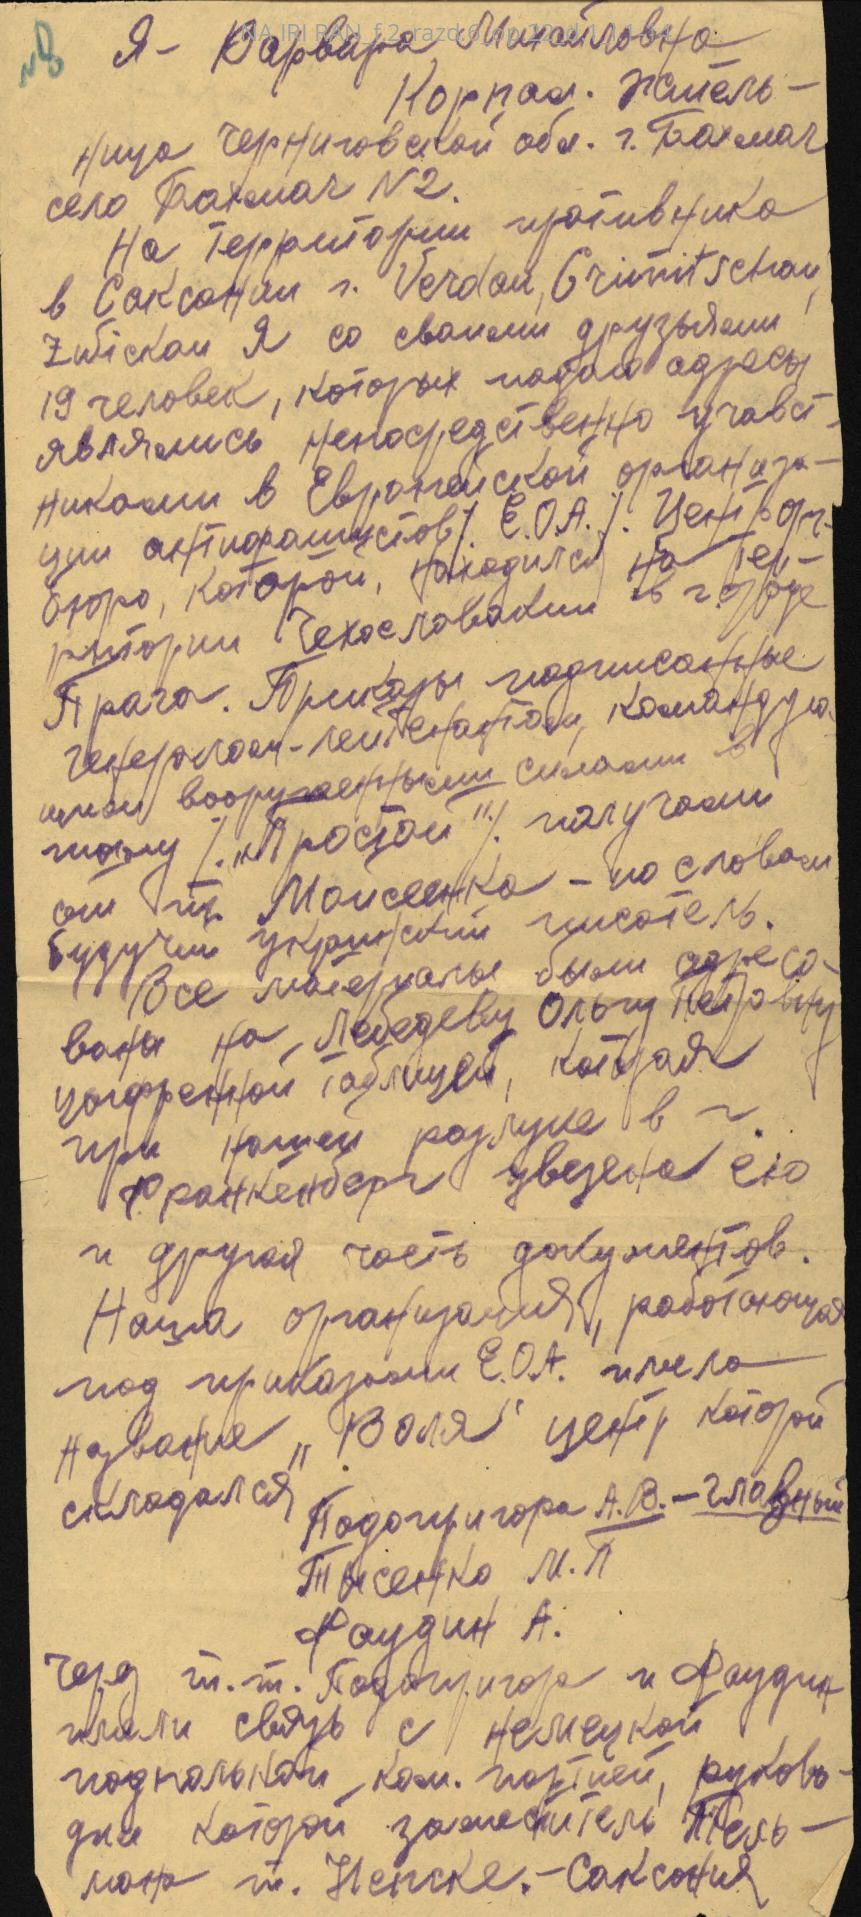 NA IRI RAN f.2 razd.6 op.22 d.1 l.1
№8
Я - Варвара Михайловна
Корпач. житель-
ница Черниговской обл. г. Бахмач
село Бахмач N2.
На территории противника
в Саксонии г. Verdau, Crimitschau,
Zwickau Я со своими друзьями
19 человек, которых подаю адресы
являлись непосредственно учавст-
никами в Европейской организа-
ции антифашистов /. Е.О.А./. Центр орг-
бюро, которой, находился на тер-
ритории Чехословакии в городе
Прага. Приказы подписанные
генералом-лейтенантом, командую-
щим вооруженными силами в
тылу /. „Простой"/. получали
от тр. Моисеенко - по словам
будучи украинский писатель.
Все материалы были адресо-
ваны на Лебедеву Ольгу Петровну
цыфренной таблицей, которая
при нашей разлуке в г.
Франкенберг увезена ею
и другая часть документов.
Наша организация, работающая
под приказами Е.О.А. имела
название „Воля" центр которой
складался
Подопригора А.В. - главный
Тысенко М.П
Фаудин А.
Через т.т. Подопригора и Фаудин
имали связь с немецкой
подпольной ком. партией, руково-
дил которой заместитель Тель-
мана т. - Саксония